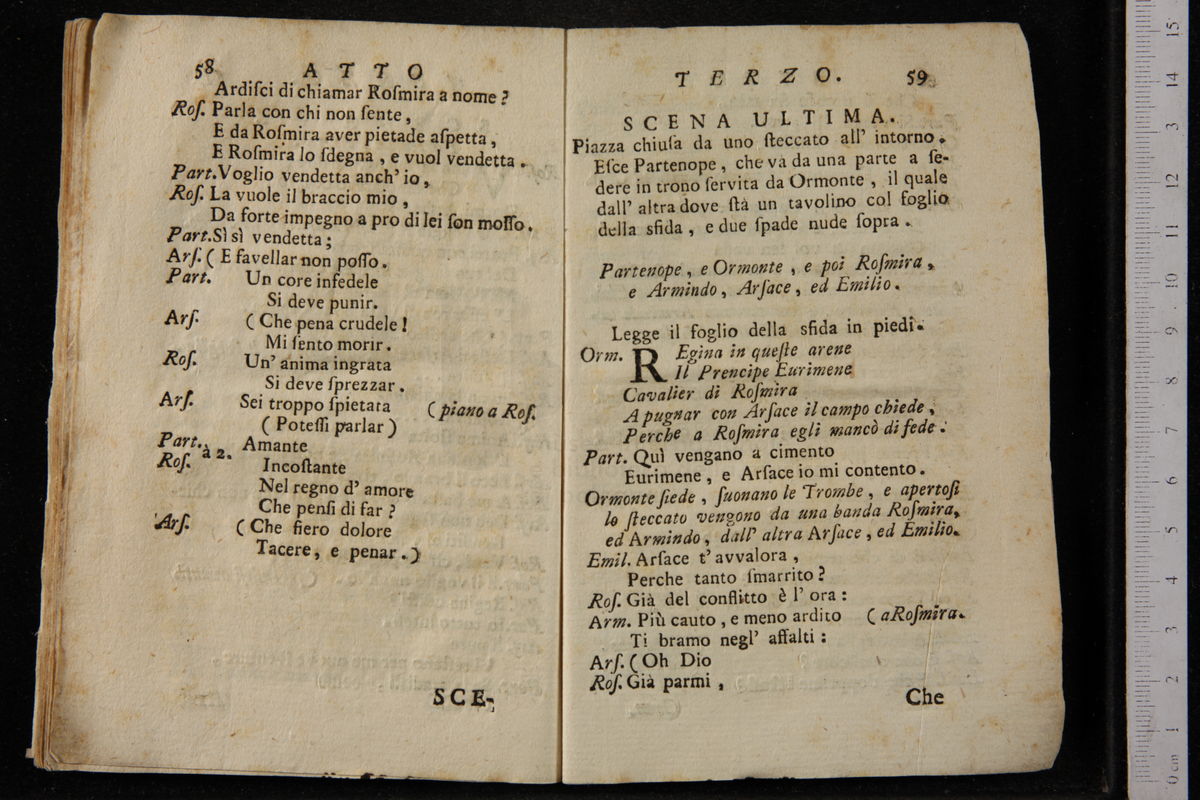 58 ATTO
Ardiſci di chiamar Roſmira a nome?
Roſ. Parla con chi non ſente,
E da Roſmira aver pietade aſpetta,
E Roſmira lo ſdegna, e vuol vendetta.
Part. Voglio vendetta anch' io,
Roſ. La vuole il braccio mio,
Da forte impegno a pro di lei ſon moſſo.
Part. Sì sì vendetta;
Arſ. (E favellar non poſſo.
Part. Un core infedele
Si deve punir.
Arſ. (Che pena crudele!
Mi ſento morir.
Roſ. Un' anima ingrata
Si deve ſprezzar.
Arſ. Sei troppo ſpietata (piano a Roſ.
(Poteſſi parlar)
Part. à 2. Amante
Roſ. Incoſtante
Nel regno d' amore
Che penſi di far?
Arſ. (Che fiero dolore
Tacere, e penar.)
SCE-
TERZO. 59
SCENA ULTIMA.
Piazza chiuſa da uno ſteccato all' intorno.
Eſce Partenope, che va da una parte a ſe-
dere in trono ſervita da Ormonte, il quale
dall' altra dove ſtà un tavolino col foglio
della sfida, e due ſpade nude ſopra.
Partenope, e Ormonte, e poi Roſmira,
e Armindo, Arſace, ed Emilio.
Legge il foglio della sfida in piedi.
Orm. REgina in queſte arene
Il Prencipe Eurimene
Cavalier di Roſmira
A pugnar con Arſace il campo chiede,
Perche a Roſmira egli mancò di fede.
Part. Quì vengano a cimento
Eurimene, e Arſace io mi contento.
Ormonte ſiede, ſuonano le Trombe, e apertoſi
lo ſteccato vengono da una banda Roſmira,
ed Armindo, dall' altra Arſace, ed Emilio.
Emil. Arſace t' avvalora,
Perche tanto ſmarrito?
Roſ. Già del conflitto è l' ora:
Arm. Più cauto, e meno ardito (a Roſmira.
Ti bramo negl' aſſalti:
Arſ. (Oh Dio
Roſ. Già parmi,
Che